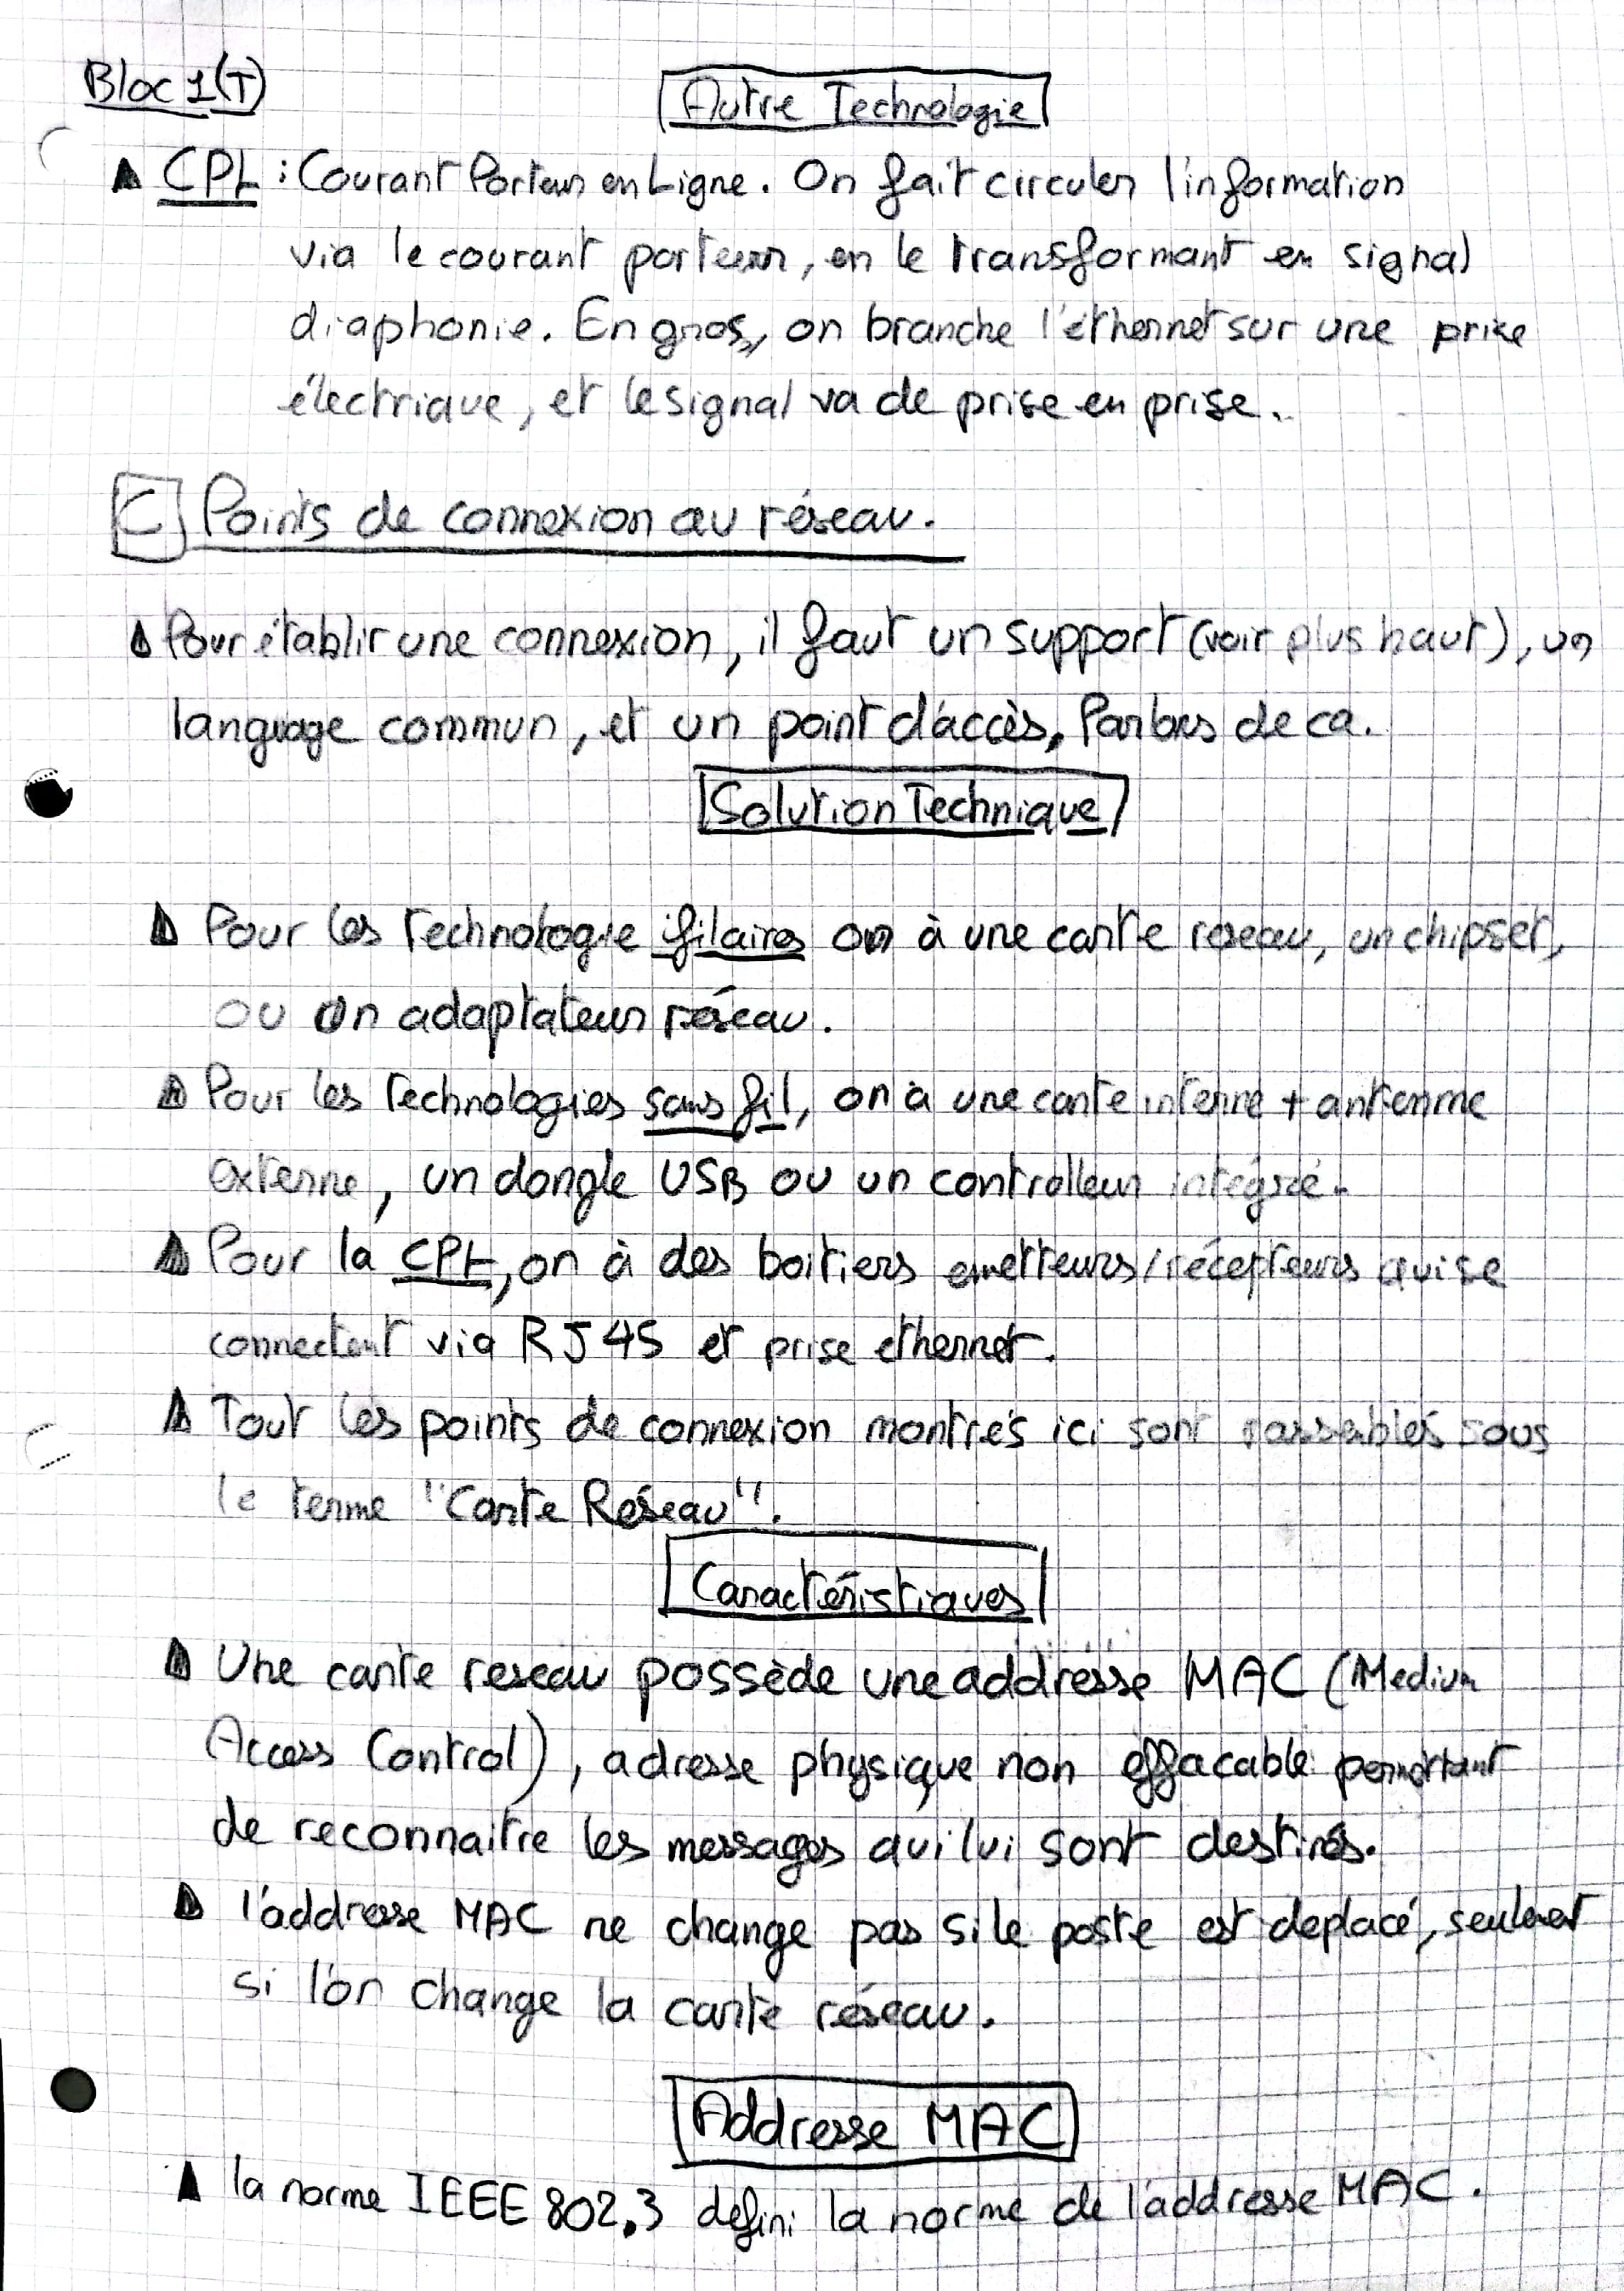 Bloc 1(T)
Autre Technologie
CPL : Courant Porteur en Ligne. On fait circuler l'information
via le courant porteur, en le transformant en signal
diaphonie. En gros, on branche l'éthernet sur une prise
électrique, et le signal va de prise en prise.
C Points de connexion au réseau.
Pour établir une connexion, il faut un support (voir plus haut), un
language commun, et un point d'accès. Parlons de ca.
Solution Technique
Pour les technologie filaires on à une carte reseau, un chipset,
ou un adaptateur réseau.
Pour les technologies sans fil, on à une carte interne + antenne
externe, un dongle USB ou un controlleur intégré.
Pour la CPL, on à des boitiers emetteurs/récepteurs qui se
connectent via RJ45 et prise ethernet.
Tout les points de connexion montrés ici sont sous
le terme "Carte Réseau".
Caractéristiques
Une carte reseau possède une addresse MAC (Medium
Access Control), adresse physique non effacable permettant
de reconnaitre les messages qui lui sont destinés.
l'addresse MAC ne change pas si le poste est deplacé, seulement
si l'on change la carte réseau.
Addresse MAC
la norme IEEE 802.3 defini la norme de l'addresse MAC.